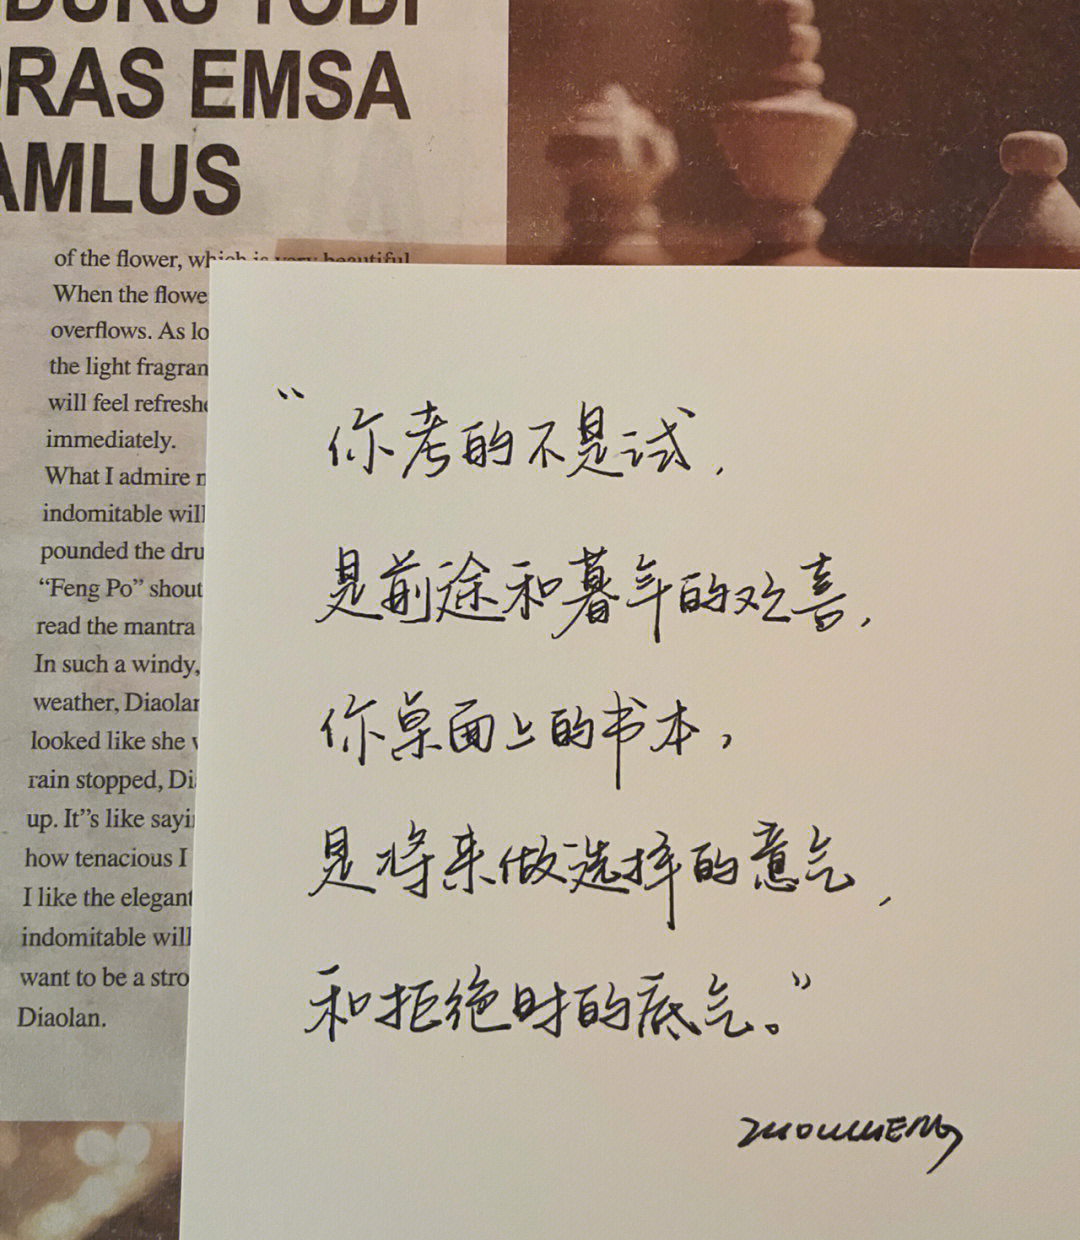 RAS EMSA
AMLUS
of the flower, which is very beautiful
When the flowe
overflows. As lo
the light fragran
will feel refreshe
immediately.
What I admire
indomitable will
pounded the dru
“Feng Po” shout
read the mantra
In such a windy,
weather, Diaolan
looked like she
rain stopped, Di
up. It”s like sayi
how tenacious I
I like the elegant
indomitable will
want to be a stro
Diaolan.
“你考的不是试，
是前途和暮年的欢喜，
你桌面上的书本，
是将来做选择的意气，
和拒绝时的底气。”